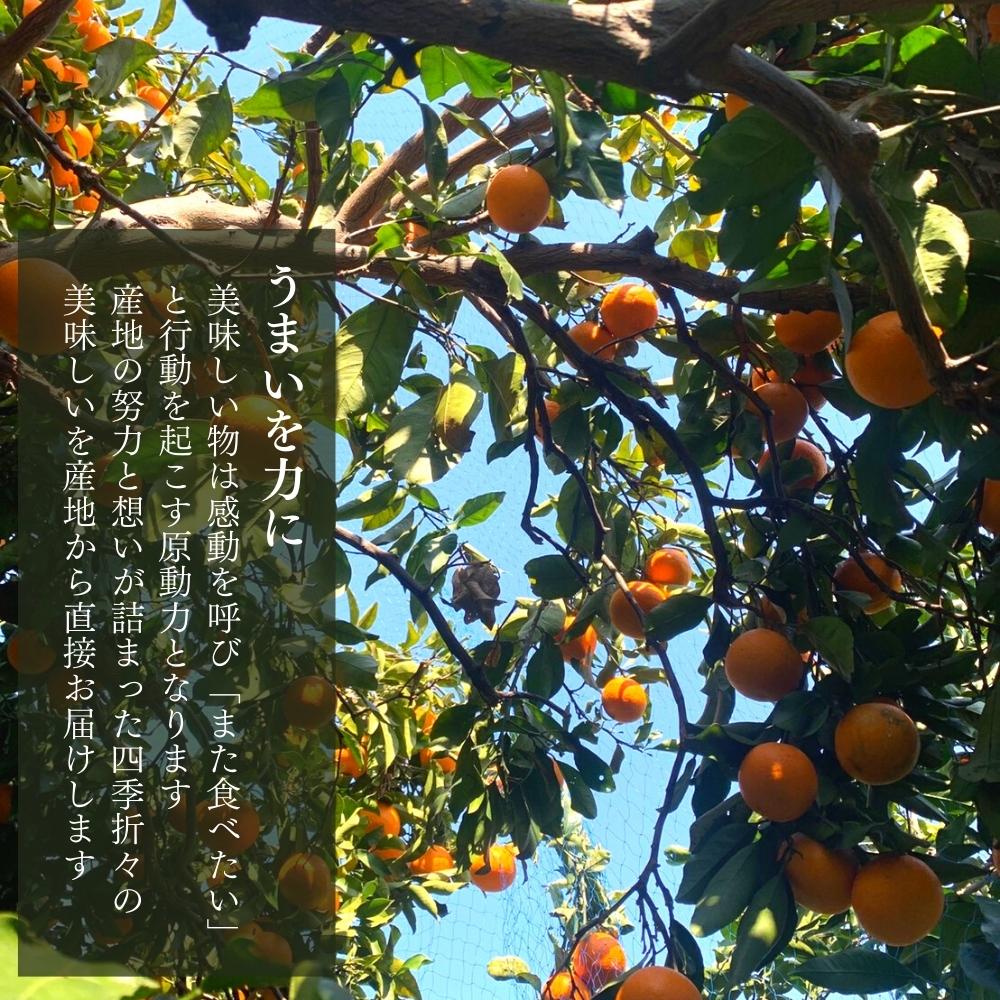 うまいを力に
美味しい物は感動を呼び「また食べたい」
と行動を起こす原動力となります
産地の努力と想いが詰まった四季折々の
美味しいを産地から直接お届けします